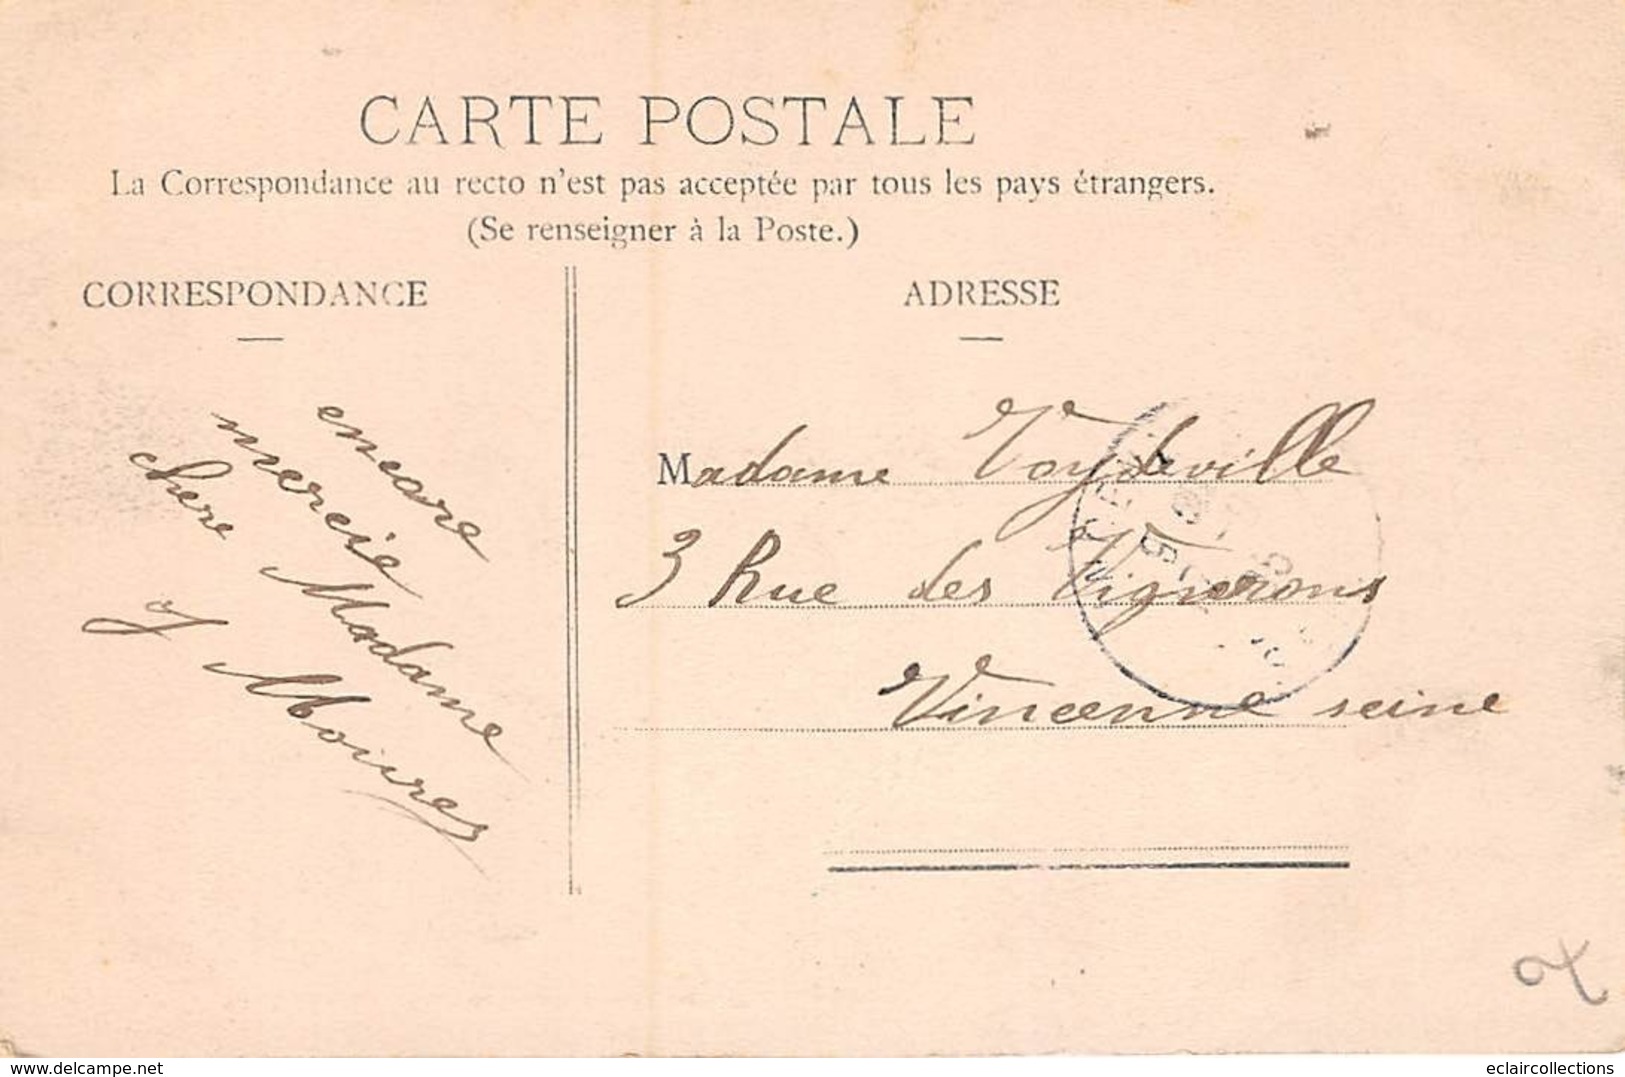 CARTE POSTALE
La Correspondance au recto n'est pas acceptée par tous les pays étrangers.
(Se renseigner à la Poste.)
CORRESPONDANCE
encore
mercie
chere Madame
J Moires
ADRESSE
Madame Voydeville
3 Rue des Vignerons
Vincenne seine
delcampe.net
eclaircollections